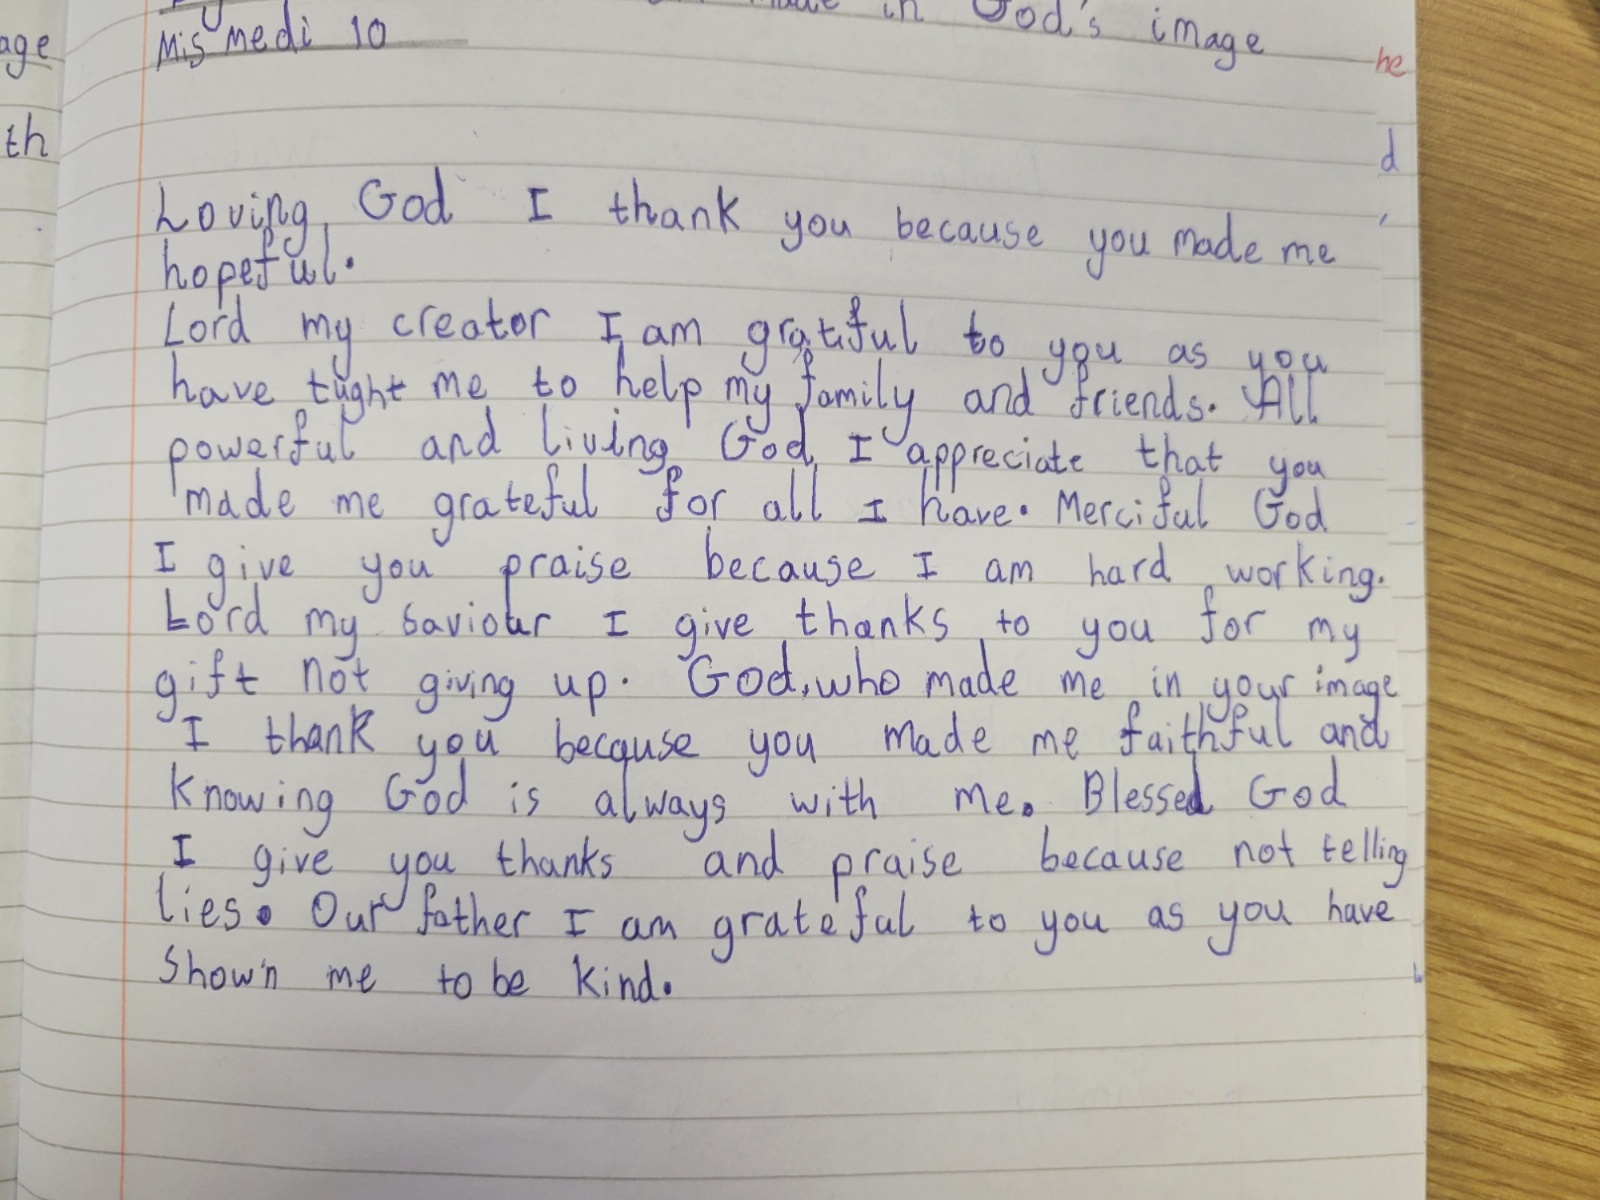 made in God's image
Mis medi 10
age
he
th
d
Loving God I thank you because you made me
hopeful.
Lord my creator I am gratful to you as you
have tught me to help my family and friends. All
powerful and living God, I appreciate that you
made me grateful for all I have. Merciful God
I give you praise because I am hard working.
Lord my saviour I give thanks to you for my
gift not giving up. God, who made me in your image
I thank you because you made me faithful and
knowing God is always with me. Blessed God
I give you thanks and praise because not telling
lies. Our father I am grateful to you as you have
shown me to be kind.